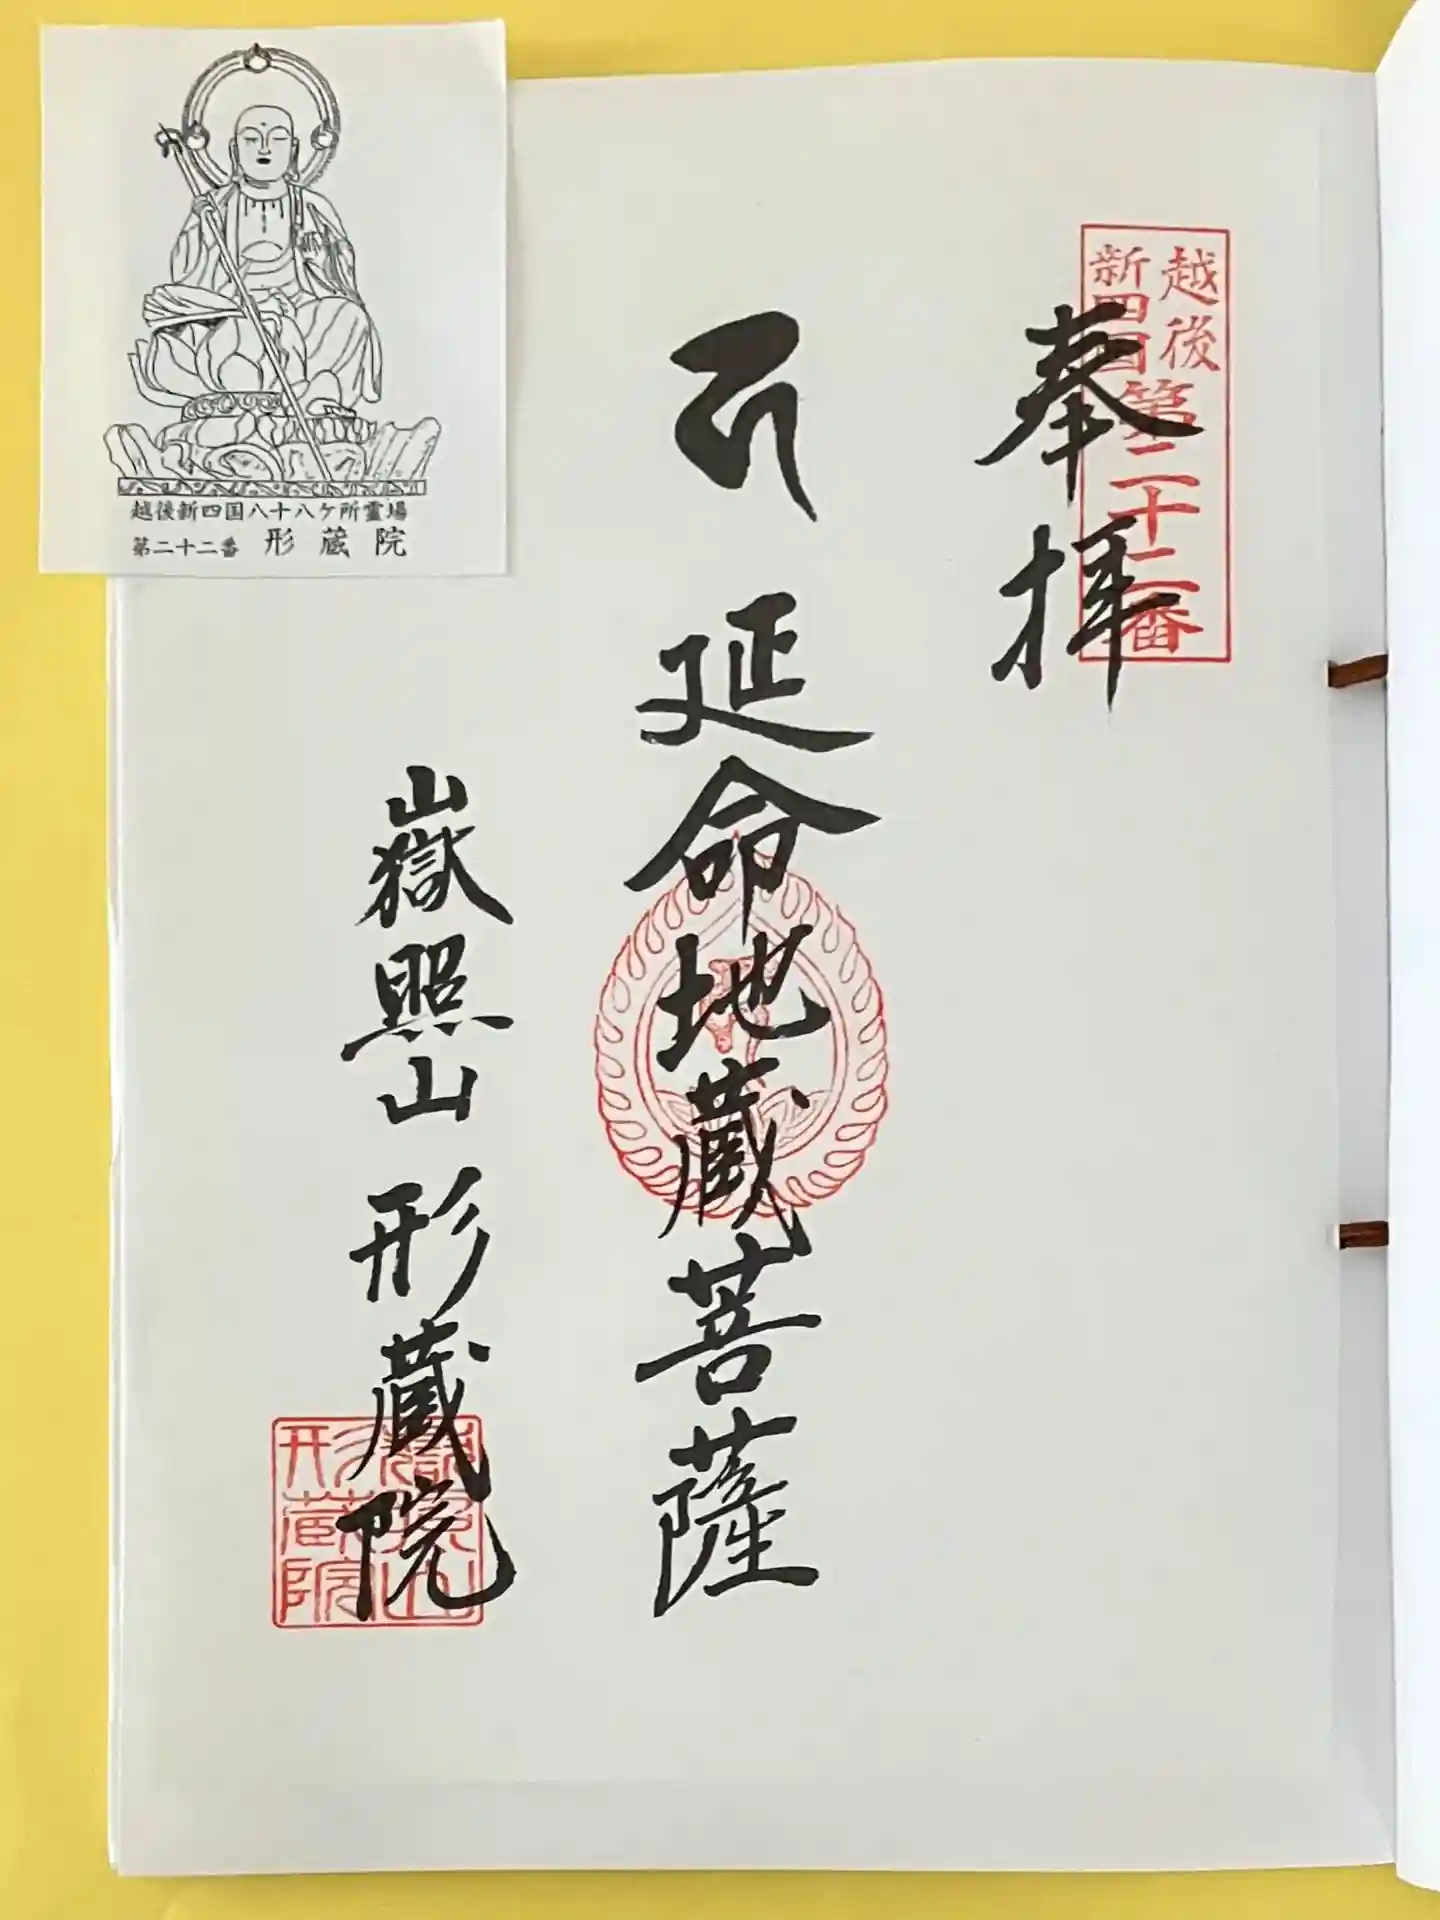 越後新四国八十八ケ所霊場
第二十二番 形蔵院
越後
新四国
第二十二番
奉拝
延命地蔵菩薩
嶽照山 形蔵院
嶽照山
形蔵院